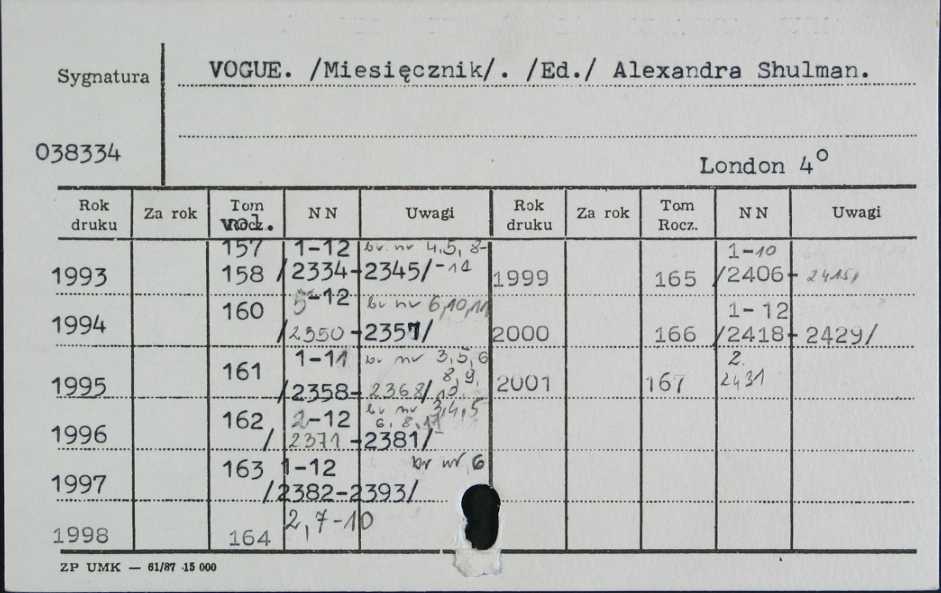 Sygnatura
VOGUE. /Miesięcznik/. /Ed./ Alexandra Shulman.
038334
London 4°
Rok druku Za rok Tom Rocz. vol. NN Uwagi Rok druku Za rok Tom Rocz. NN Uwagi
157 1-12 br. nr 4,5,8-
1993 158 /2334-2345/ -11 1999 165 1-10 /2406-2415/
1994 160 5-12 br nr 6,10,11
/2350-2357/ 2000 166 1-12 /2418-2429/
1995 161 1-11 br nr 3,5,6
8,9,
/2358-2368/ 10. 2001 167 2. 2431
1996 162 2-12 br nr 3,4,5
6,8,11
/2371-2381/
1997 163 1-12 br nr 6
/2382-2393/
1998 164 2,7-10
ZP UMK — 61/87 15 000